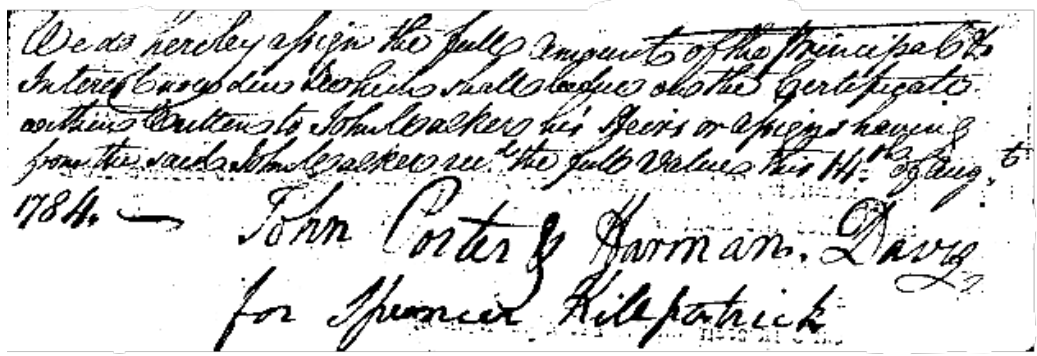 We do hereby assign the full amount of the Principal &
Interest now due & which shall be due on the Certificate
within Written to John Walker his Heirs or assigns having
from the said John Walker recd. the full Value this 14th of Augt.
1784.
John Porter & Harman Davis
for Spencer Kilpatrick